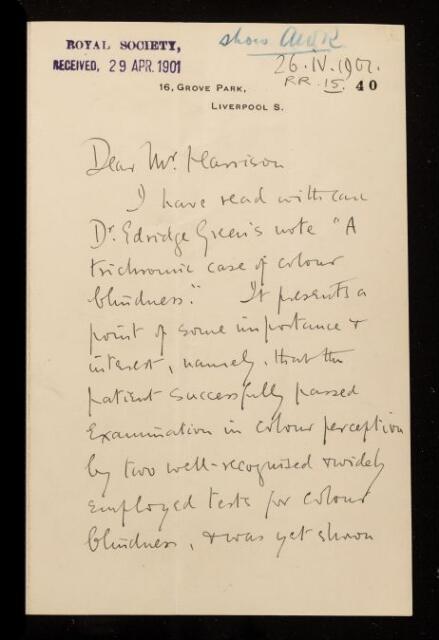 ROYAL SOCIETY,
RECEIVED, 29 APR. 1901
show AWR
26.IV.1901.
RR. 15. 40
16, GROVE PARK,
LIVERPOOL S.
Dear Mr. Harrison
I have read with care
Dr. Edridge Green's note "A
trichromic case of colour
blindness". It presents a
point of some importance &
interest, namely, that the
patient successfully passed
Examination in colour perception
by two well-recognised & widely
employed tests for colour
blindness, & was yet shown